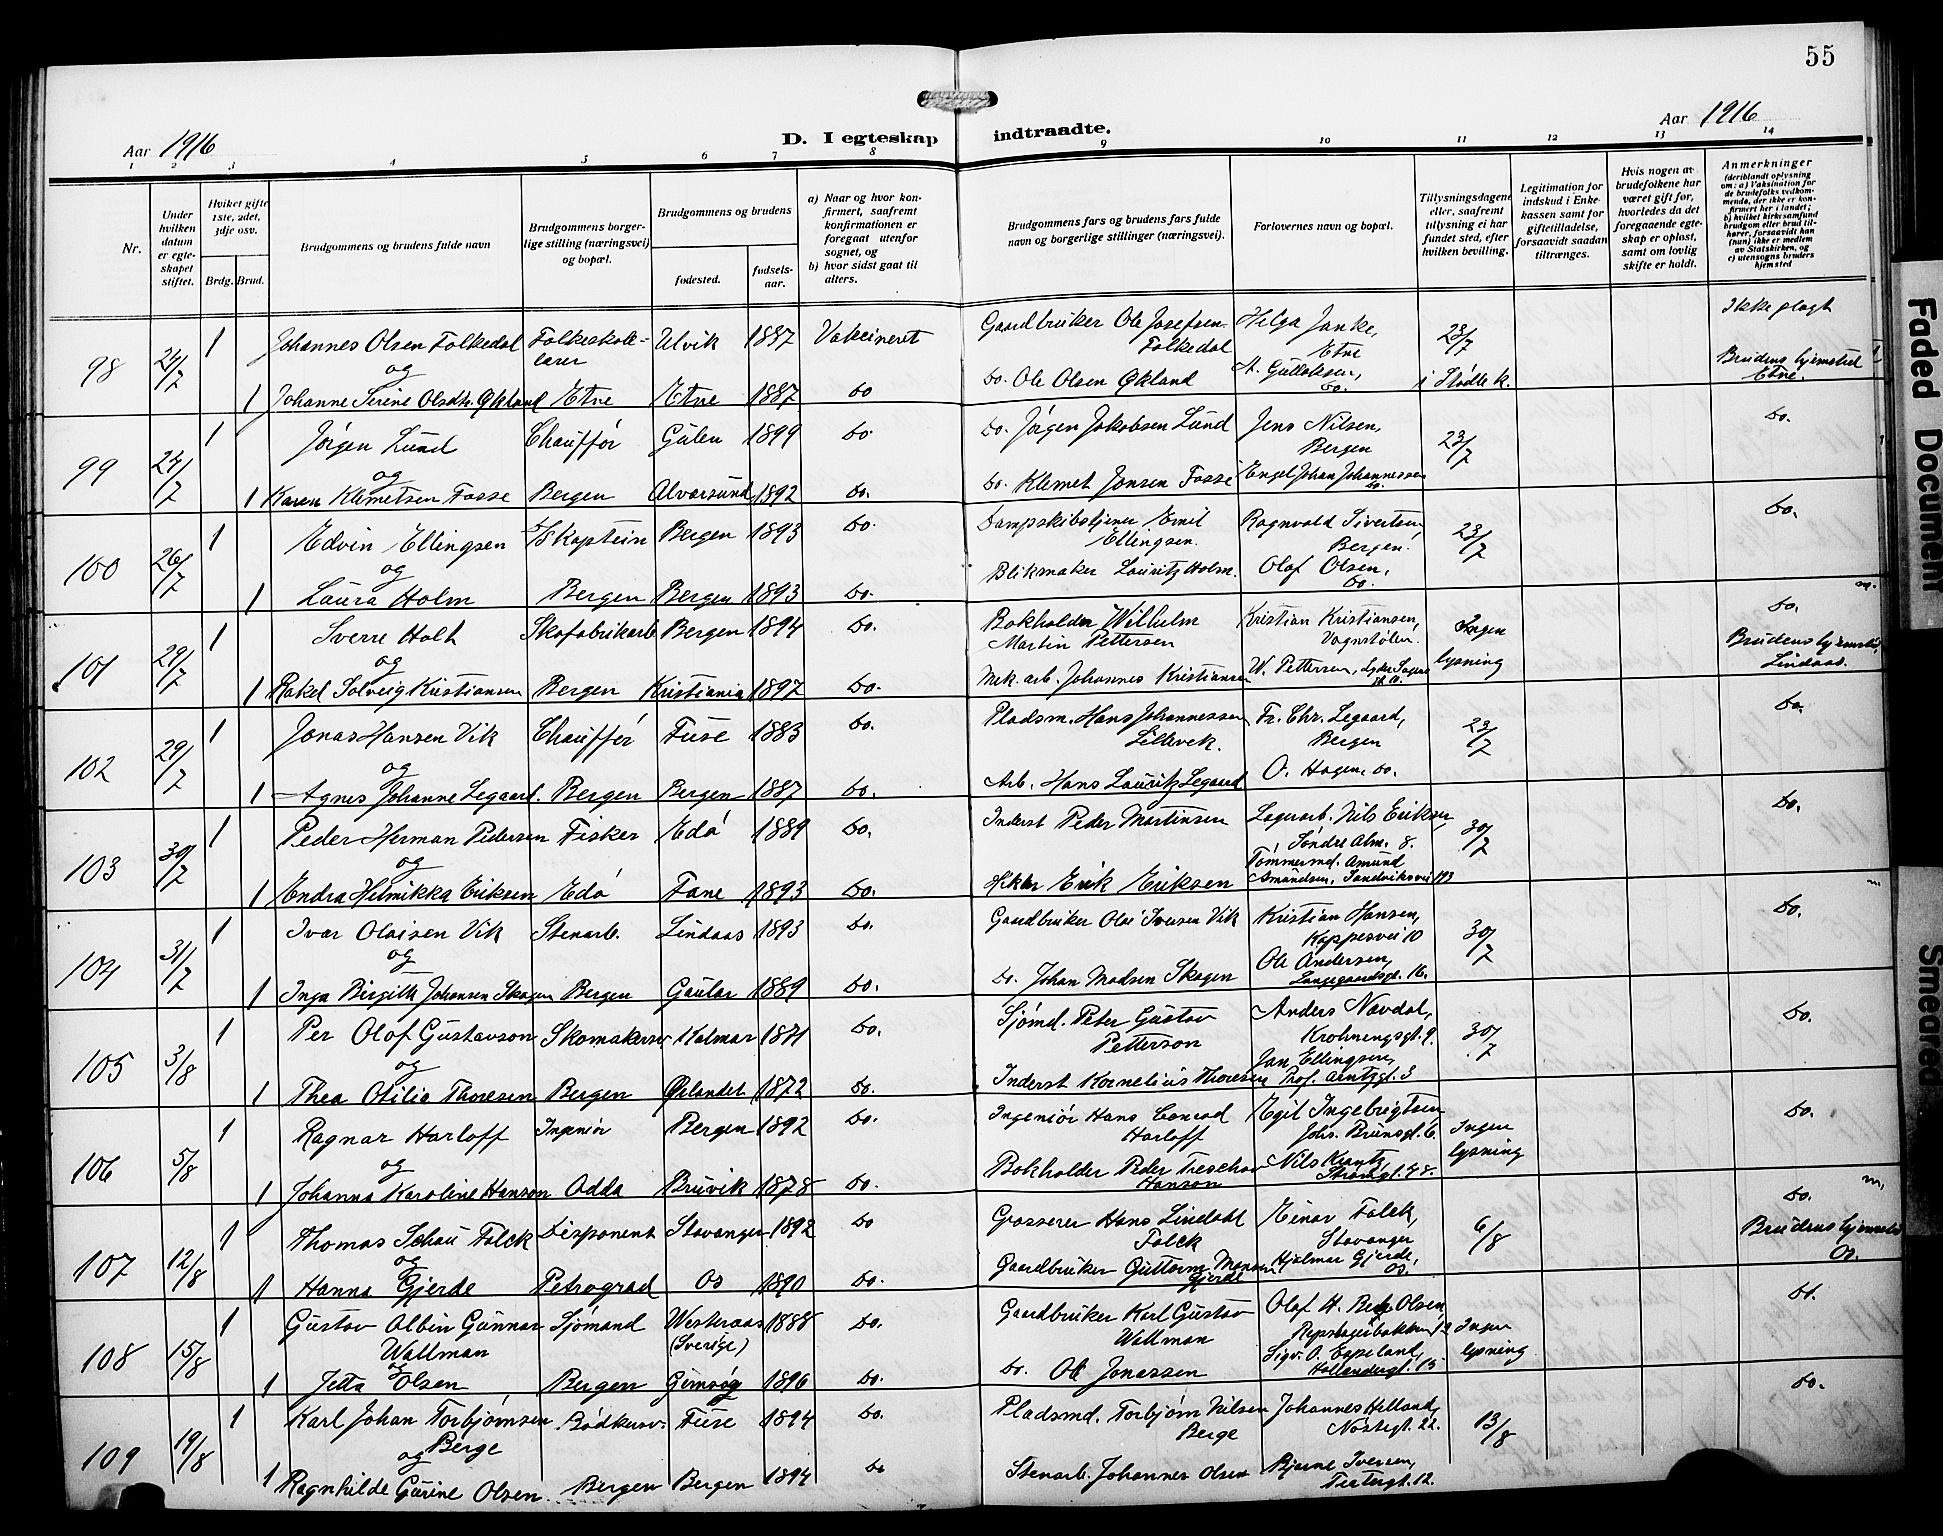 55
Aar 1916
D. I egteskap indtraadte.
Aar 1916
1 2 3 4 5 6 7 8 9 10 11 12 13 14
Nr.
Under hvilken datum er egteskapet stiftet.
Hvilket gifte 1ste, 2det, 3dje osv.
Brdg. Brud.
Brudgommens og brudens fulde navn
Brudgommens borgerlige stilling (næringsvei) og bopæl.
Brudgommens og brudens
fødested.
fødselsaar.
a) Naar og hvor konfirmert, saafremt konfirmationen er foregaat utenfor sognet, og
b) hvor sidst gaat til alters.
Brudgommens fars og brudens fars fulde navn og borgerlige stillinger (næringsvei).
Forlovernes navn og bopæl.
Tillysningsdagene eller, saafremt tillysning ei har fundet sted, efter hvilken bevilling.
Legitimation for indskud i Enkekassen samt for giftetilladelse, forsaavidt saadan tiltrænges.
Hvis nogen av brudefolkene har været gift før, hvorledes da det foregaaende egteskap er opløst, samt om lovlig skifte er holdt.
Anmerkninger (deriblandt oplysning om: a) Vaksination for de brudefolks vedkommende, der ikke er konfirmert her i landet; b) hvilket kirkesamfund brudgom eller brud tilhører, forsaavidt han (hun) ikke er medlem av Statskirken, og c) utensogns bruders hjemsted
98 24/7 1 Johannes Olsen Folkedal Folkeskolelærer Ulvik 1887 Vakcineret Gaardbruker Ole Josefsen Folkedal Helga Janke, Etne 23/7 Ikke plagt
og
1 Johanne Serine Olsdtr. Økland Etne Etne 1887 do do. Ole Olsen Økland A. Gulleksen, do. i Stødle k. Brudens hjemsted Etne.
99 24/7 1 Jørgen Lund Chauffør Gulen 1899 do. do. Jørgen Jakobsen Lund Jens Nilsen, Bergen 23/7 do.
og
1 Karen Klemetsen Fosse Bergen Alversund 1892 do. do. Klemet Jonsen Fosse Engel Johan Johannessen do.
100 26/7 1 Edvin Ellingsen Kaptein Bergen 1893 do. Dampskibstjener Emil Ellingsen. Ragnvald Sivertsen Bergen. 23/7 do.
og
1 Laura Holm Bergen Bergen 1893 do. Blikmaker Lauritz Holm. Olaf Olsen, do.
101 29/7 1 Sverre Holt Skofabrikarb Bergen 1894 do. Bokholder Wilhelm Martin Pettersen Kristian Kristiansen, Vognstølen. Ingen lysning do.
og
1 Rakel Solveig Kristiansen Bergen Kristiania 1897 do. Mek. arb. Johannes Kristiansen W. Pettersen, Lyder Sagens Brudens hjemsted Lindaas.
102 29/7 1 Jonas Hansen Vik Chauffør Fuse 1883 do. Pladsm. Hans Johannessen Lillevek. Fr. Chr. Legaard, Bergen 23/7 do.
og
1 Agnes Johanne Legaard. Bergen Bergen 1887 do. Arb. Hans Lauritz Legaard O. Hagen, do.
103 30/7 1 Peder Herman Pedersen Fisker Edø 1889 do. Inderst Peder Martinsen Lagerarb. Nils Eriksen, Søndre Alm. 8. 30/7 do.
og
1 Endra Helmikka Eriksen Edø Fane 1893 do. Erik Eriksen Tømmermd. Amund Amundsen, Sandviksvei 113
104 31/7 1 Ivar Olaisen Vik Stenarb. Lindaas 1893 do. Gaardbruker Olai Iversen Vik Kristian Hansen, Kappesvei 10 30/7 do.
og
1 Inga Birgitte Johansen Skogen Bergen Gaular 1889 do. do. Johan Madsen Skogen Ole Andersen, Langegaardsgt. 16.
105 3/8 1 Per Olof Gustavson Skomakersv Kalmar 1871 do. Sjømd. Peter Gustav Petterson Anders Novdal, Krohnengsgt. 9. 30/7 do.
og
1 Thea Otilie Thoresen Bergen Ørlandet 1872 do. Inderst Kornelius Thoresen Jan Ellingsen, Prof. Arntzgt. 3
106 5/8 1 Ragnar Harloff Ingeniør Bergen 1892 do. Ingeniør Hans Conrad Harloff Egil Ingebrigtsen Johs. Brunsgt. 6. Ingen lysning do.
og
1 Johanna Karoline Hanson Odda Bruvik 1878 do. Bokholder Peder Treschow Hanson Nils Krantz Strømgt. 48.
107 12/8 1 Thomas Schau Falck Disponent Stavanger 1892 do Grosserer Hans Lindahl Falck Einar Falck, Stavanger 6/8 do.
og
1 Hanna Gjerde Petrograd Os 1890 do. Gaardbruker Guttorm Monsen Gjerde Hjalmar Gjerde, Os. Brudens hjemsted Os.
108 15/8 1 Gustav Albin Gunnar Wallman Sjømand Westeraas (Sverige) 1888 do. Gaardbruker Karl Gustav Wallman Olaf H. Olsen, Repslagerbakken 12 Ingen lysning do.
og
1 Jetta Olsen Bergen Gimsøy 1896 do. do. Ole Jonassen Sigv. O. Espeland, Hollendergt. 15
109 19/8 1 Karl Johan Torbjørnsen Berge Bødkersv. Fuse 1894 do. Pladsmd. Torbjørn Nilsen Berge Johannes Helland, Nøstegt. 22. 13/8 do.
og
1 Ragnhilde Gurine Olsen Bergen Bergen 1894 do Stenarb. Johannes Olsen Bjarne Iversen, Teatergt. 12.
Faded Document
Smeared